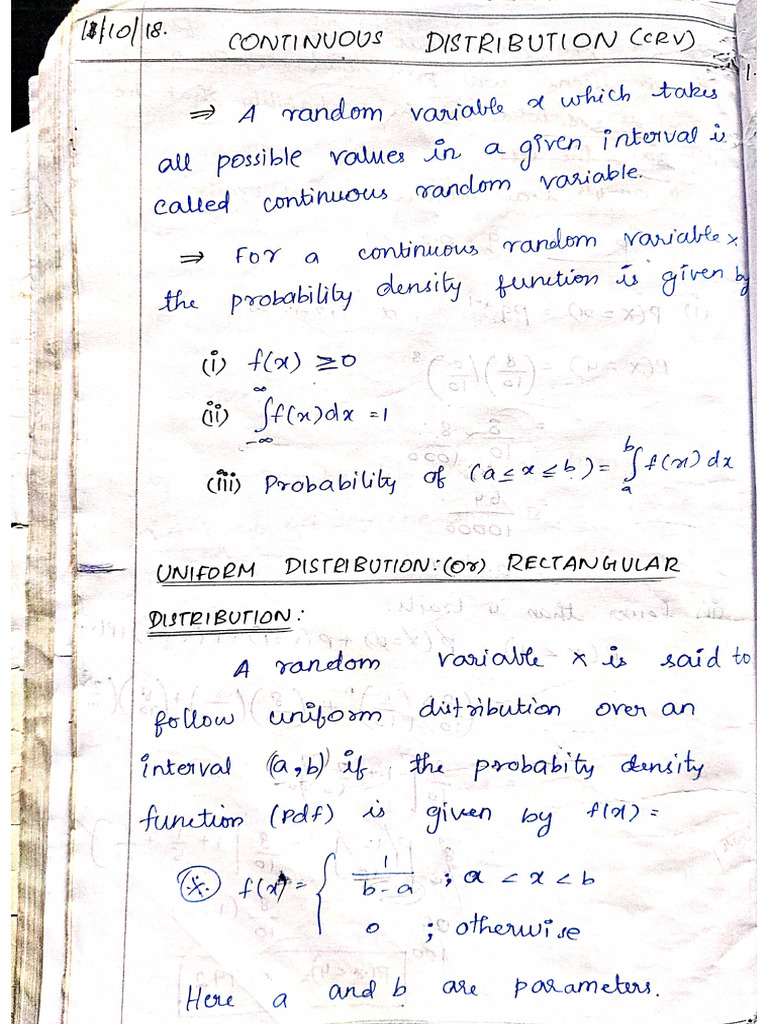 18/10/18.
CONTINUOUS DISTRIBUTION (CRV)
⇒ A random variable x which takes
all possible values in a given interval is
called continuous random variable.
⇒ For a continuous random variable x
the probability density function is given by
(i) f(x) ≥ 0
(ii) ∫_{-∞}^{∞} f(x) dx = 1
(iii) Probability of (a ≤ x ≤ b) = ∫_a^b f(x) dx
UNIFORM DISTRIBUTION: (Or) RECTANGULAR
DISTRIBUTION:
A random variable x is said to
follow uniform distribution over an
interval (a, b) if the probabity density
function (Pdf) is given by f(x) =
* f(x) = { 1/(b-a) ; a < x < b
0 ; otherwise
Here a and b are parameters.